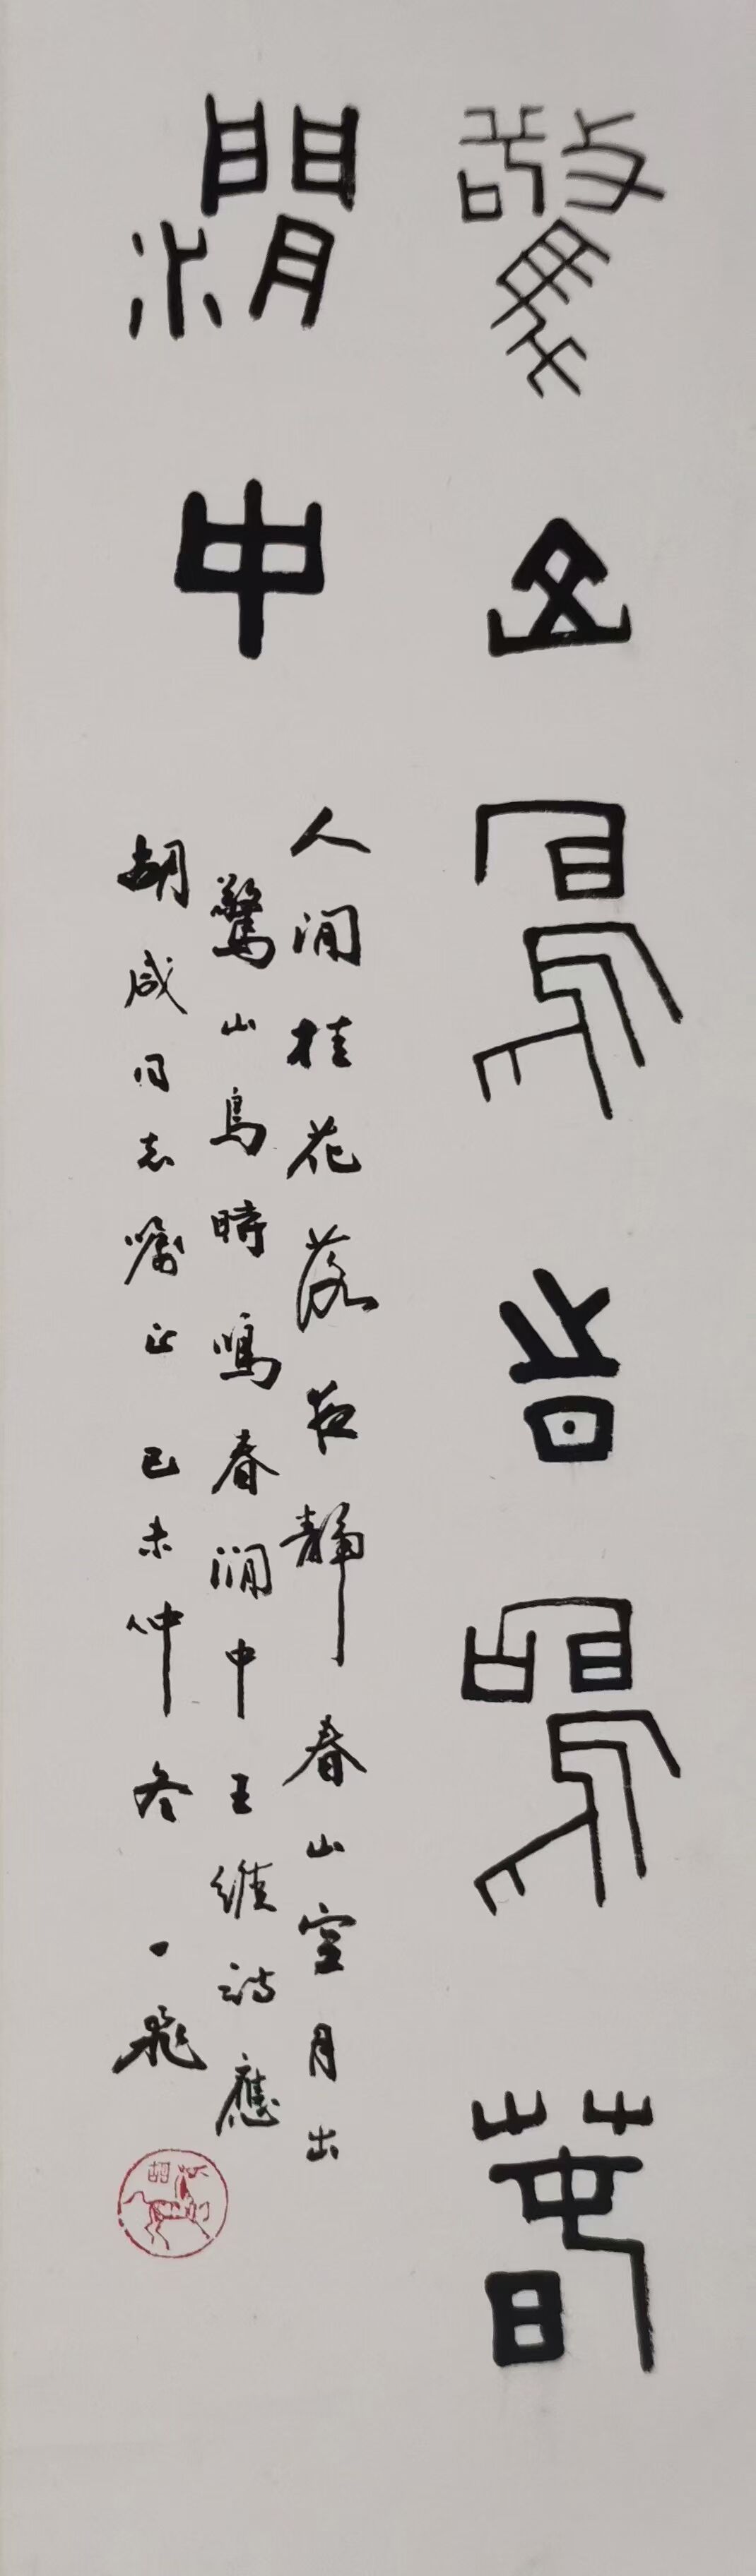 驚山鳥時鳴春
澗中
人間桂花落夜靜春山空月出
驚山鳥時鳴春澗中王維詩應
胡咸同志囑正己未仲冬一飛